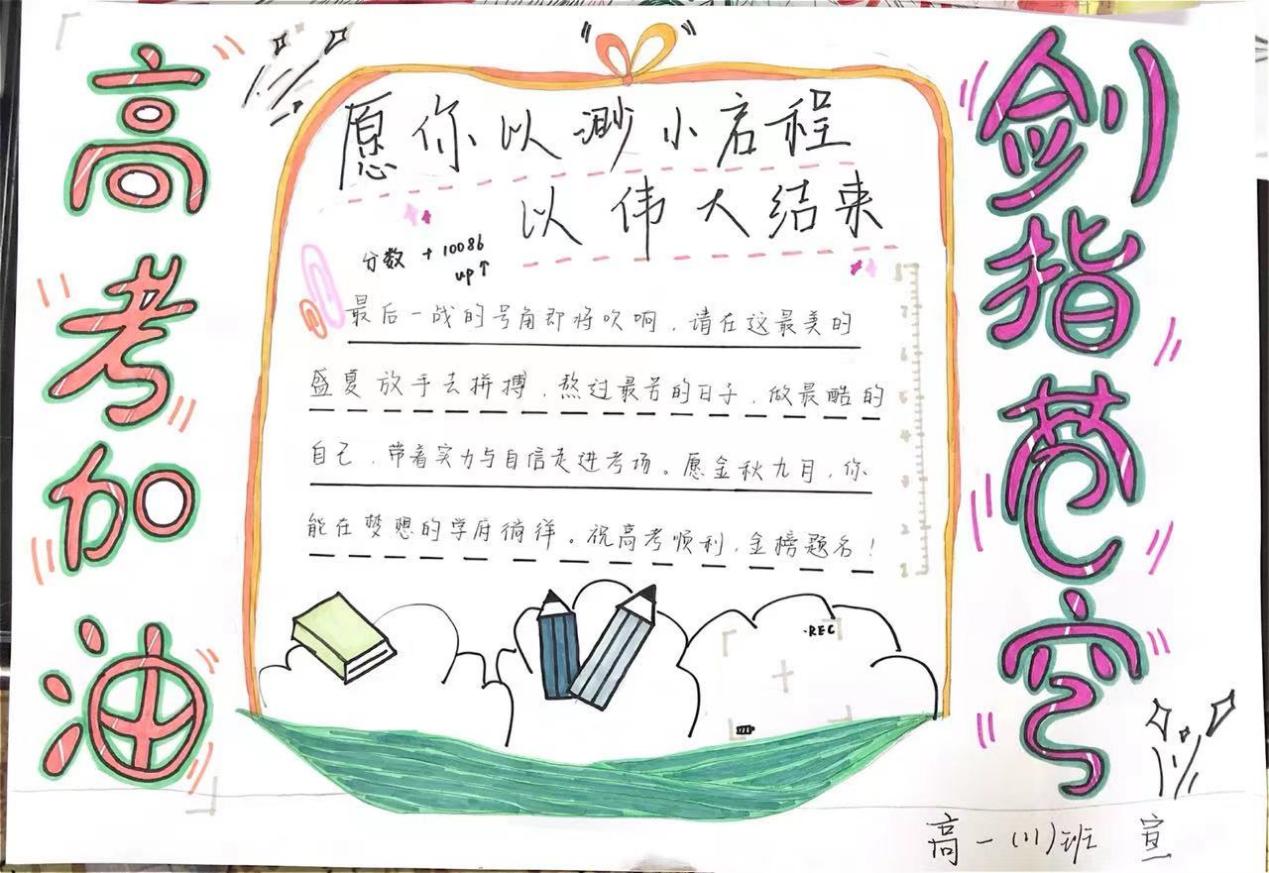 高考加油
愿你以渺小启程
以伟大结束
分数 +10086
up↑
最后一战的号角即将吹响，请在这最美的
盛夏放手去拼搏，熬过最苦的日子，做最酷的
自己，带着实力与自信走进考场。愿金秋九月，你
能在梦想的学府徜徉。祝高考顺利，金榜题名！
8
7
6
5
4
3
2
1
·REC
剑指苍穹
高一（11）班 宣